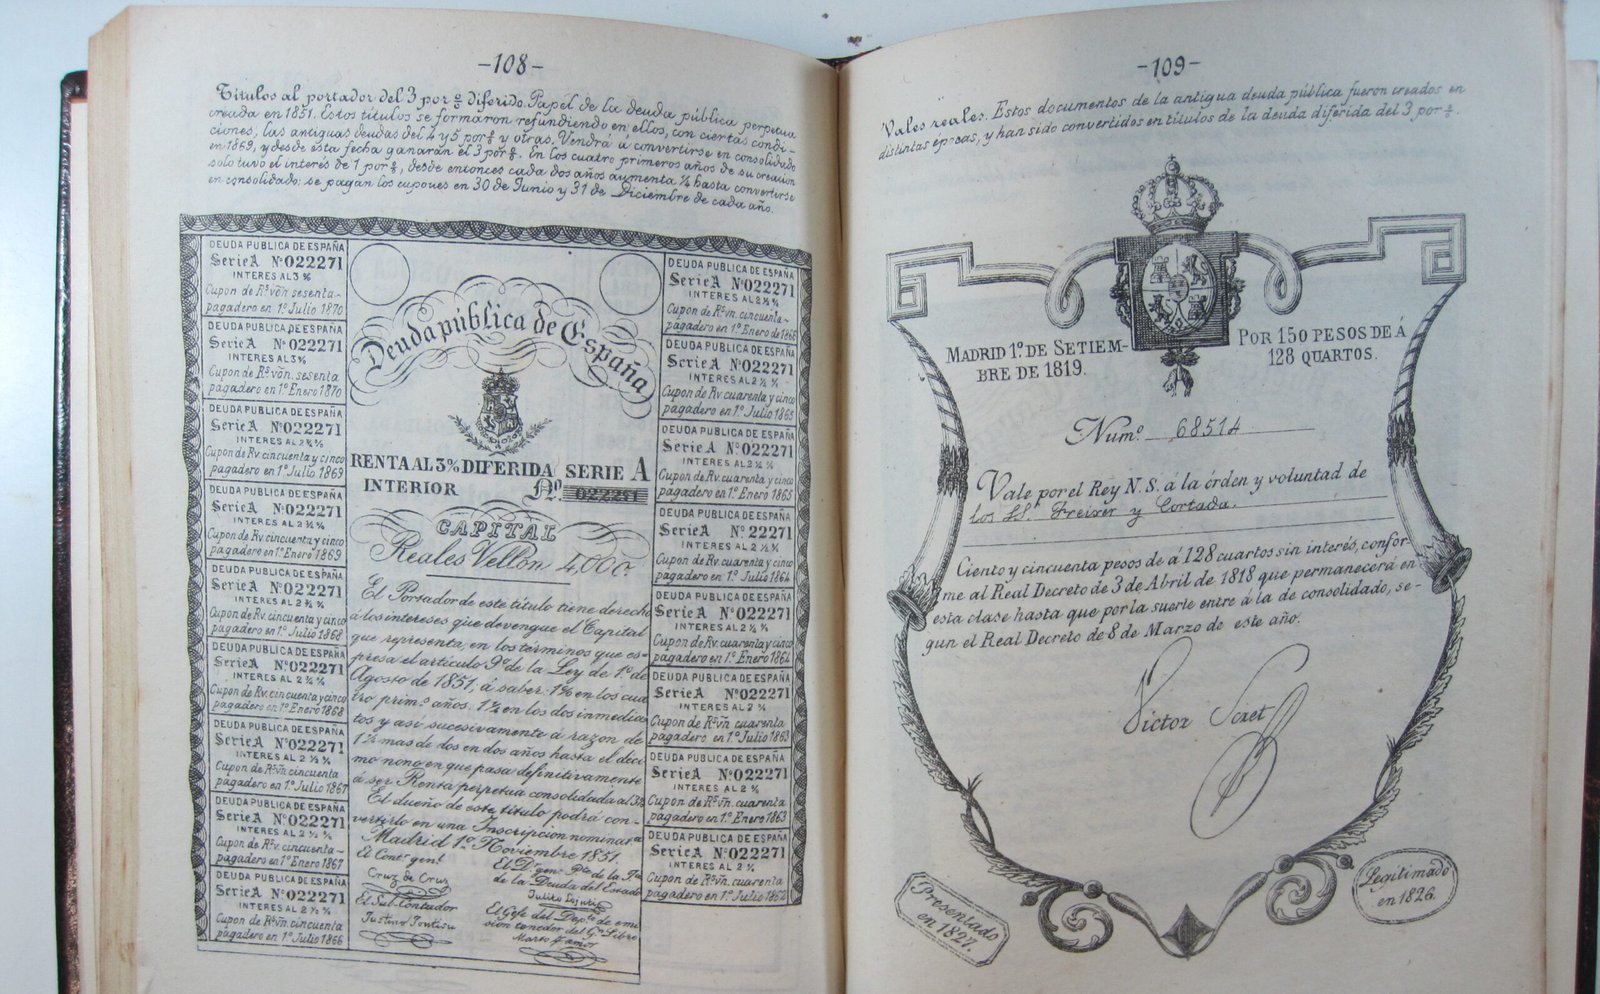 -108-
Titulos al portador del 3 por % diferido. Papel de la deuda pública perpetua
creada en 1851. Estos títulos se formaron refundiendo en ellos, con ciertas condi-
ciones, las antiguas deudas del 4 y 5 por % y otras. Vendrá a convertirse en consolidado
en 1869, y desde esta fecha ganarán el 3 por %. En los cuatro primeros años de su creacion
solo tuvo el interés de 1 por %, desde entonces cada dos años aumenta ¼ hasta convertirse
en consolidado: se pagan los cupones en 30 de Junio y 31 de Diciembre de cada año.
DEUDA PUBLICA DE ESPAÑA
Serie A Nº 022271
INTERES AL 3 %
Cupon de Rˢ vón. sesenta-
pagadero en 1º Julio 1870
DEUDA PUBLICA DE ESPAÑA
Serie A Nº 022271
INTERES AL 3 %
Cupon de Rˢ vón. sesenta
pagadero en 1º Enero 1870
DEUDA PUBLICA DE ESPAÑA
Serie A Nº 022271
INTERES AL 2 ¾ %
Cupon de Rv. cincuenta y cinco
pagadero en 1º Julio 1869
DEUDA PUBLICA DE ESPAÑA
Serie A Nº 022271
INTERES AL 2 ¾ %
Cupon de Rv. cincuenta y cinco
pagadero en 1º Enero 1869
DEUDA PUBLICA DE ESPAÑA
Serie A Nº 022271
INTERES AL 2 ¾ %
Cupon de Rv. cincuenta y cinco
pagadero en 1º Julio 1868
DEUDA PUBLICA DE ESPAÑA
Serie A Nº 022271
INTERES AL 2 ¾ %
Cupon de Rv. cincuenta y cinco
pagadero en 1º Enero 1868
DEUDA PUBLICA DE ESPAÑA
Serie A Nº 022271
INTERES AL 2 ½ %
Cupon de Rˢ vn. cincuenta
pagadero en 1º Julio 1867
DEUDA PUBLICA DE ESPAÑA
Serie A Nº 022271
INTERES AL 2 ½ %
Cupon de Rˢ v. cincuenta-
pagadero en 1º Enero 1867
DEUDA PUBLICA DE ESPAÑA
Serie A Nº 022271
INTERES AL 2 ½ %
Cupon de Rˢ vn. cincuenta
pagadero en 1º Julio 1866
Deuda pública de España
RENTA AL 3% DIFERIDA SERIE A
INTERIOR Nº 022271
CAPITAL
Reales Vellon 4,000.
El Portador de este título tiene derecho
á los intereses que devengue el Capital
que representa, en los términos que es-
presa el artículo 9º de la Ley de 1º de
Agosto de 1851, á saber: 1% en los cua-
tro prim.ˢ años. 1¼ en los dos inmedia
tos y así sucesivamente á razon de
1¼ mas de dos en dos años hasta el deci
mo nono en que pasa definitivamente
á ser Renta perpetua consolidada al 3%
El dueño de este título podrá con-
vertirlo en una Inscripcion nominat.ᵛᵃ
Madrid 1º Noviembre 1851.
El Contº genˡ
Cruz de Cruz
El Sub-Contador
Justino
El Dʳ genˡ Pᵗᵉ de la Jᵗᵃ
de la Deuda del Estado
El Gefe del Depᵗº de emi
sion tenedor del Gⁿ Libro
DEUDA PUBLICA DE ESPAÑA
Serie A Nº 022271
INTERES AL 2 ½ %
Cupon de Rˢ vn. cincuenta-
pagadero en 1º Enero de 1866
DEUDA PUBLICA DE ESPAÑA
Serie A Nº 022271
INTERES AL 2 ¼ %
Cupon de Rv. cuarenta y cinco
pagadero en 1º Julio 1865
DEUDA PUBLICA DE ESPAÑA
Serie A Nº 022271
INTERES AL 2 ¼ %
Cupon de Rv. cuarenta y cinco
pagadero en 1º Enero 1865
DEUDA PUBLICA DE ESPAÑA
Serie A Nº 22271
INTERES AL 2 ¼ %
Cupon de Rv. cuarenta y cinco
pagadero en 1º Julio 1864
DEUDA PUBLICA DE ESPAÑA
Serie A Nº 022271
INTERES AL 2 ¼ %
Cupon de Rv. cuarenta y cinco
pagadero en 1º Enero 1864
DEUDA PUBLICA DE ESPAÑA
Serie A Nº 022271
INTERES AL 2 %
Cupon de Rˢ vn. cuarenta
pagadero en 1º Julio 1863
DEUDA PUBLICA DE ESPAÑA
Serie A Nº 022271
INTERES AL 2 %
Cupon de Rˢ vn. cuarenta
pagadero en 1º Enero 1863
DEUDA PUBLICA DE ESPAÑA
Serie A Nº 022271
INTERES AL 2 %
Cupon de Rˢ vn. cuarenta
pagadero en 1º Julio 1862
-109-
Vales reales. Estos documentos de la antigua deuda pública fueron creados en
distintas épocas, y han sido convertidos en titulos de la deuda diferida del 3 por %.
MADRID 1º DE SETIEM-
BRE DE 1819.
POR 150 PESOS DE Á
128 QUARTOS.
Numº 68514
Vale por el Rey N. S. á la órden y voluntad de
los SSʳ Freixer y Cortada.
Ciento y cincuenta pesos de á 128 cuartos sin interés, confor-
me al Real Decreto de 3 de Abril de 1818 que permanecerá en
esta clase hasta que por la suerte entre á la de consolidado, se-
gun el Real Decreto de 8 de Marzo de este año.
Victor Soret
Presentado
en 1827.
Legitimado
en 1826.